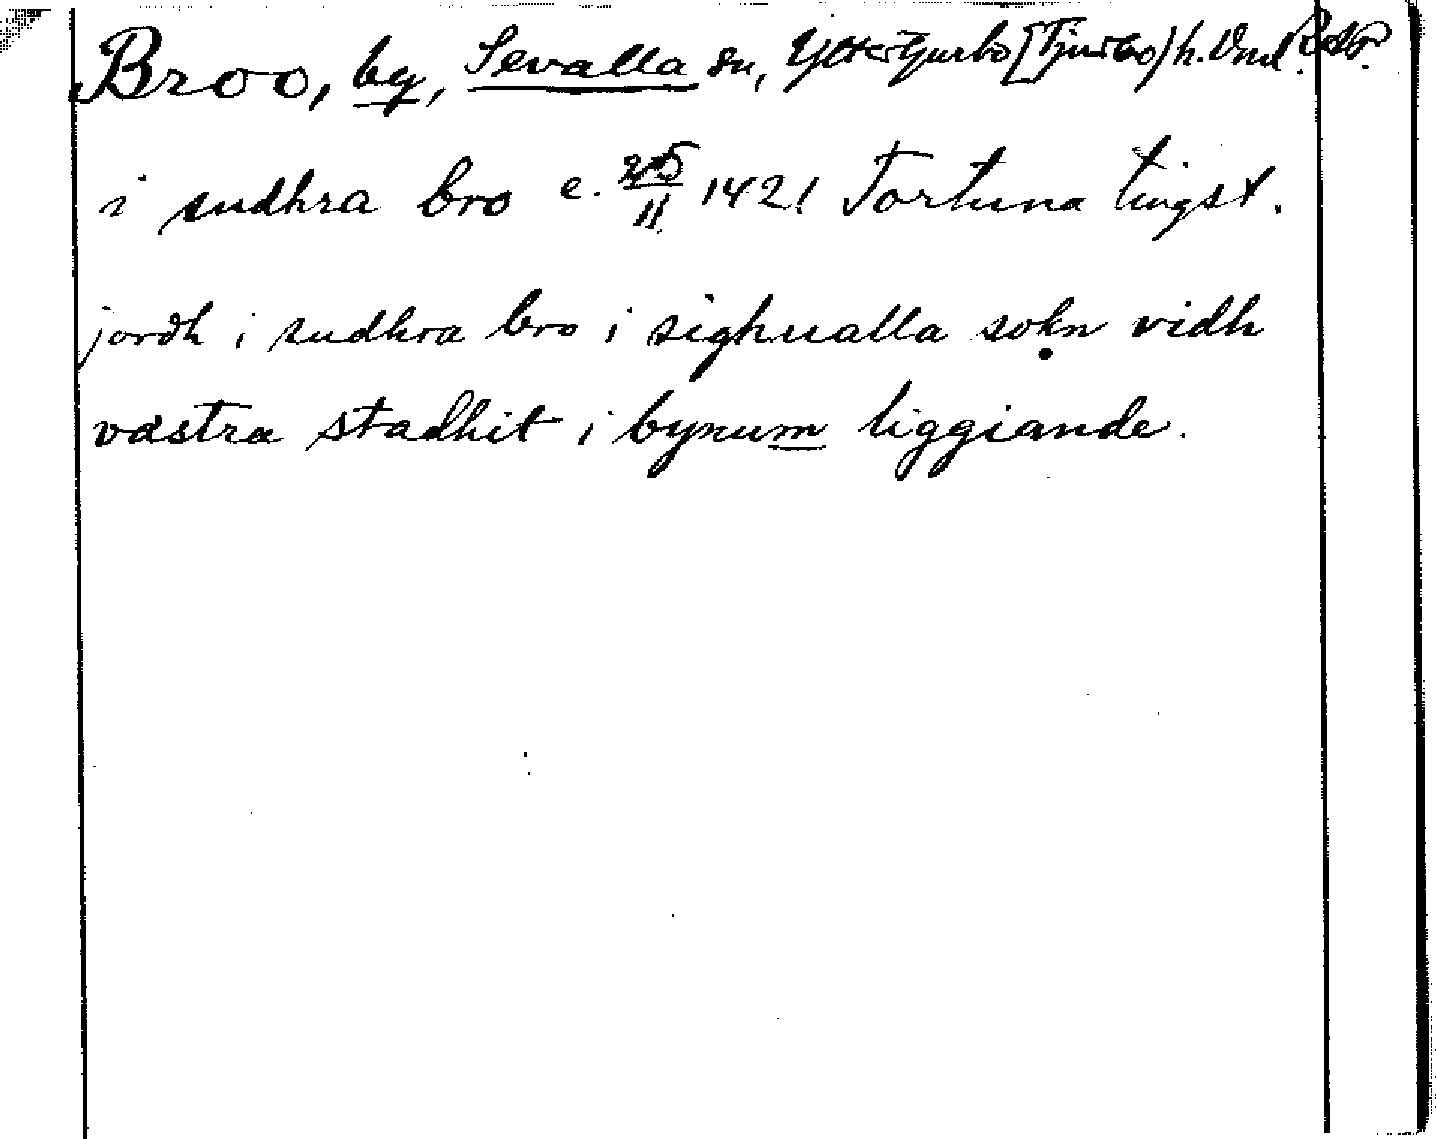 Broo, by, Sevalla sn, Yttertjurbo [Tjurbo] h. Vml.
i sudhra bro c. 25/11 1421 Tortuna tingst.
jordh i sudhra bro i sighualla sokn vidh
vastra stadhit i bynum liggiande.